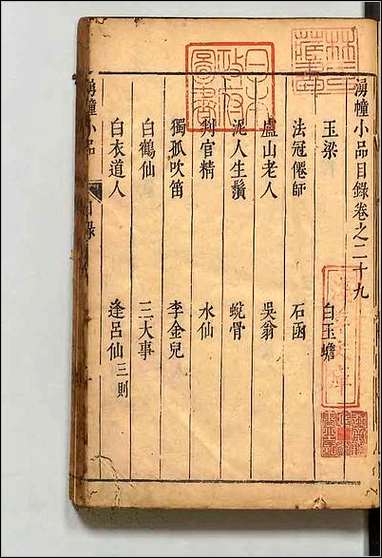 湧幢小品目錄卷之二十九
玉梁 白玉蟾
法冠僊師 石函
盧山老人 吳翁
泥人生鬚 蛻骨
判官精 水仙
獨孤吹笛 李金兒
白鶴仙 三大事
白衣道人 逢呂仙三則
湧幢小品
日本
政府
圖書